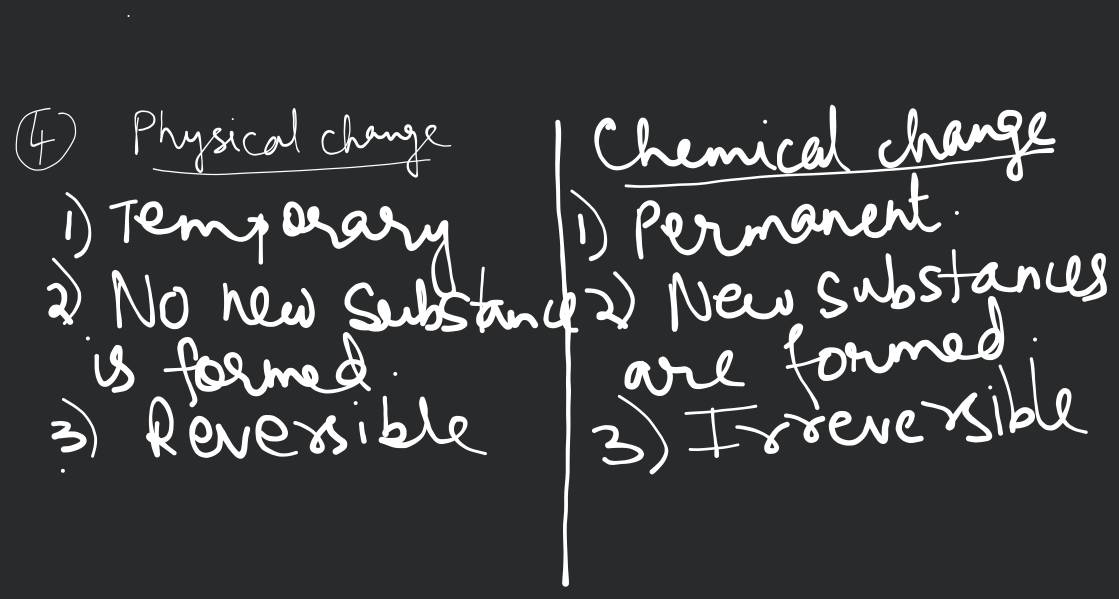 4 Physical change
1) Temporary
2) No new substance
is formed.
3) Reversible
Chemical change
1) Permanent.
2) New substances
are formed.
3) Irreversible